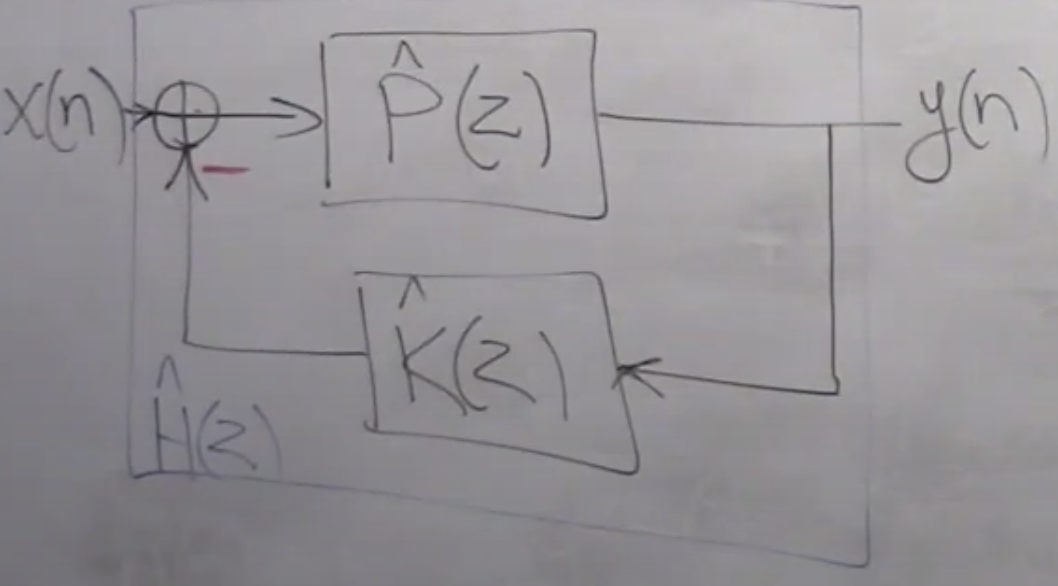 x(n) P̂(z) y(n)
−
K̂(z)
Ĥ(z)